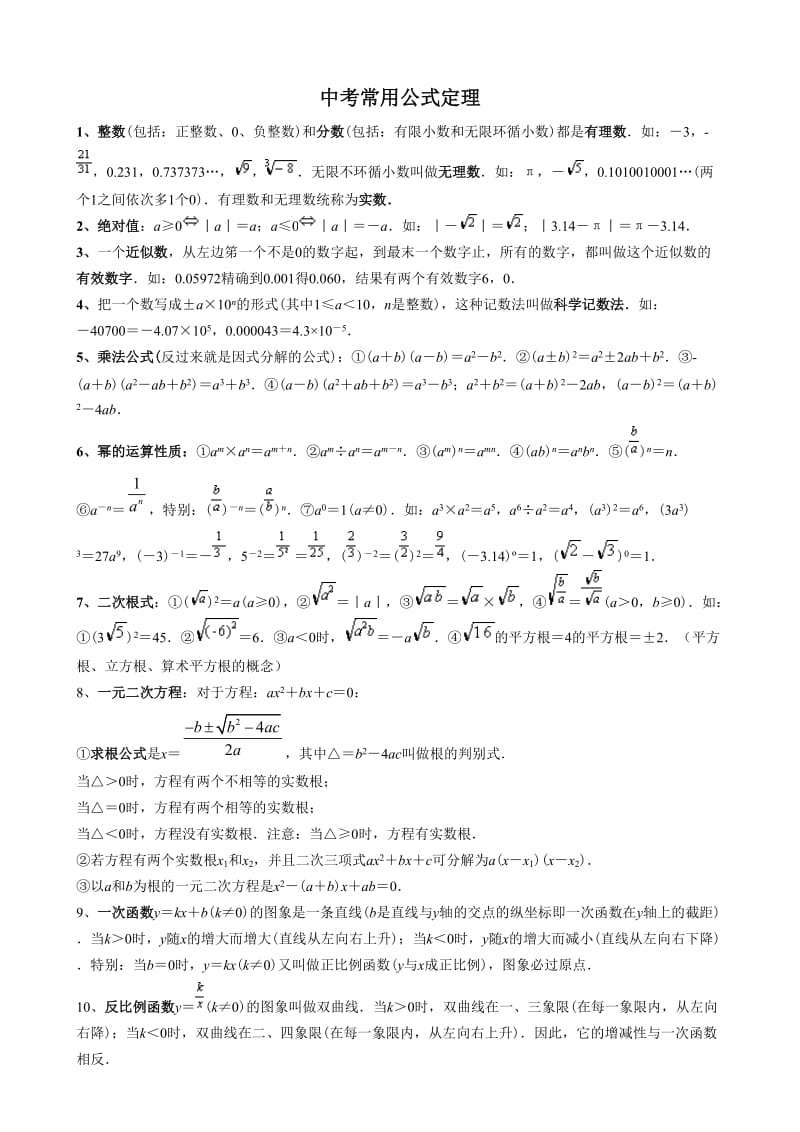 中考常用公式定理
1、整数(包括：正整数、0、负整数)和分数(包括：有限小数和无限环循小数)都是有理数．如：－3，-
21/31，0.231，0.737373…，√9，∛-8．无限不环循小数叫做无理数．如：π，－√5，0.1010010001…(两
个1之间依次多1个0)．有理数和无理数统称为实数．
2、绝对值：a≥0⇔丨a丨＝a；a≤0⇔丨a丨＝－a．如：丨－√2丨＝√2；丨3.14－π丨＝π－3.14．
3、一个近似数，从左边第一个不是0的数字起，到最末一个数字止，所有的数字，都叫做这个近似数的
有效数字．如：0.05972精确到0.001得0.060，结果有两个有效数字6，0．
4、把一个数写成±a×10ⁿ的形式(其中1≤a＜10，n是整数)，这种记数法叫做科学记数法．如：
－40700＝－4.07×10⁵，0.000043＝4.3×10⁻⁵．
5、乘法公式(反过来就是因式分解的公式)：①(a＋b)(a－b)＝a²－b²．②(a±b)²＝a²±2ab＋b²．③-
(a＋b)(a²－ab＋b²)＝a³＋b³．④(a－b)(a²＋ab＋b²)＝a³－b³；a²＋b²＝(a＋b)²－2ab，(a－b)²＝(a＋b)
²－4ab．
6、幂的运算性质：①aᵐ×aⁿ＝aᵐ⁺ⁿ．②aᵐ÷aⁿ＝aᵐ⁻ⁿ．③(aᵐ)ⁿ＝aᵐⁿ．④(ab)ⁿ＝aⁿbⁿ．⑤(b/a)ⁿ＝n．
⑥a⁻ⁿ＝1/aⁿ，特别：(b/a)⁻ⁿ＝(a/b)ⁿ．⑦a⁰＝1(a≠0)．如：a³×a²＝a⁵，a⁶÷a²＝a⁴，(a³)²＝a⁶，(3a³)
³＝27a⁹，(－3)⁻¹＝－1/3，5⁻²＝1/5²＝1/25，(2/3)⁻²＝(3/2)²＝9/4，(－3.14)º＝1，(√2－√3)⁰＝1．
7、二次根式：①(√a)²＝a(a≥0)，②√a²＝丨a丨，③√ab＝√a×√b，④√(b/a)＝√b/√a(a＞0，b≥0)．如：
①(3√5)²＝45．②√(-6)²＝6．③a＜0时，√a²b＝－a√b．④√16的平方根＝4的平方根＝±2．（平方
根、立方根、算术平方根的概念）
8、一元二次方程：对于方程：ax²＋bx＋c＝0：
①求根公式是x＝(−b±√(b²−4ac))/2a，其中△＝b²－4ac叫做根的判别式．
当△＞0时，方程有两个不相等的实数根；
当△＝0时，方程有两个相等的实数根；
当△＜0时，方程没有实数根．注意：当△≥0时，方程有实数根．
②若方程有两个实数根x₁和x₂，并且二次三项式ax²＋bx＋c可分解为a(x－x₁)(x－x₂)．
③以a和b为根的一元二次方程是x²－(a＋b)x＋ab＝0．
9、一次函数y＝kx＋b(k≠0)的图象是一条直线(b是直线与y轴的交点的纵坐标即一次函数在y轴上的截距)
．当k＞0时，y随x的增大而增大(直线从左向右上升)；当k＜0时，y随x的增大而减小(直线从左向右下降)
．特别：当b＝0时，y＝kx(k≠0)又叫做正比例函数(y与x成正比例)，图象必过原点．
10、反比例函数y＝k/x(k≠0)的图象叫做双曲线．当k＞0时，双曲线在一、三象限(在每一象限内，从左向
右降)；当k＜0时，双曲线在二、四象限(在每一象限内，从左向右上升)．因此，它的增减性与一次函数
相反．